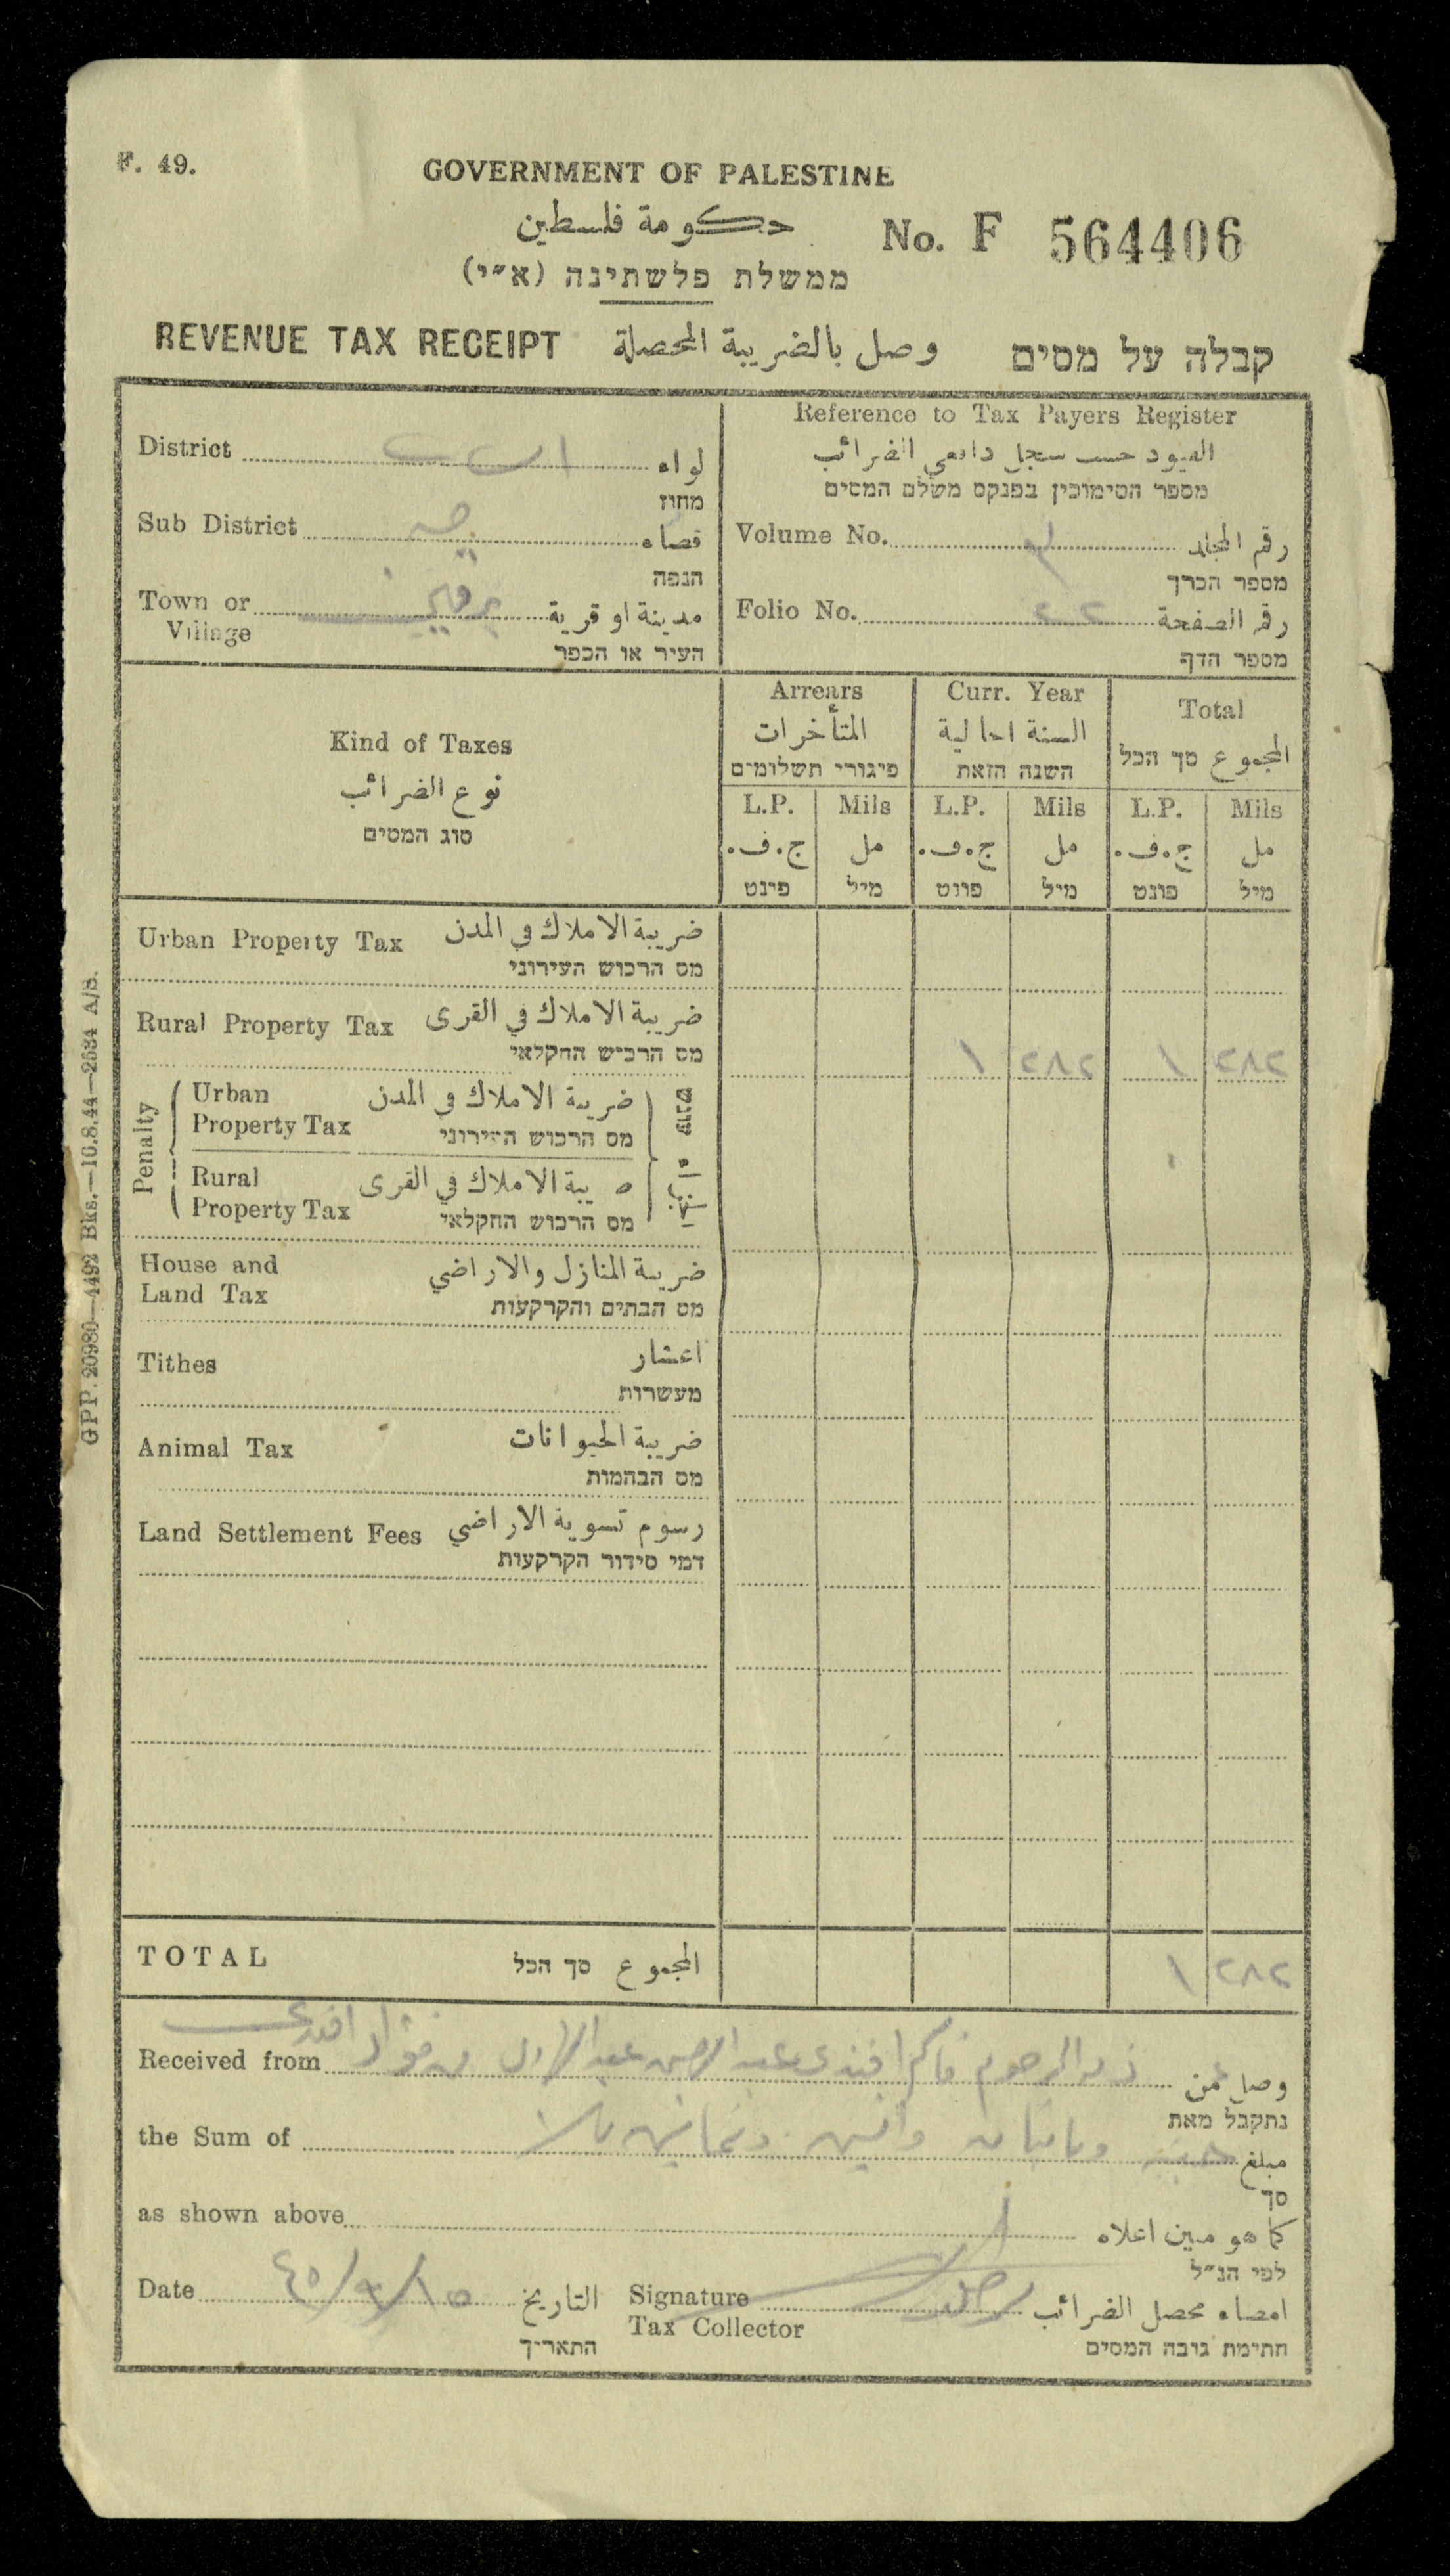 F. 49.
GOVERNMENT OF PALESTINE
حكومة فلسطين
No. F 564406
ממשלת פלשתינה (א״י)
REVENUE TAX RECEIPT وصل بالضريبة المحصلة קבלה על מסים
District لواء
מחוז
Sub District قضاء
הנפה
Town or Village مدينة او قرية
העיר או הכפר
Reference to Tax Payers Register
القيود حسب سجل دافعي الضرائب
מספר הסימוכין בפנקס משלם המסים
Volume No. رقم المجلد
מספר הכרך
Folio No. رقم الصفحة
מספר הדף
Kind of Taxes
نوع الضرائب
סוג המסים
Arrears
المتأخرات
פיגורי תשלומים
Curr. Year
السنة الحالية
השנה הזאת
Total
المجموع סך הכל
L.P. Mils L.P. Mils L.P. Mils
ج.ف. مل ج.ف. مل ج.ف. مل
פונט מיל פונט מיל פונט מיל
Urban Property Tax ضريبة الاملاك في المدن
מס הרכוש העירוני
Rural Property Tax ضريبة الاملاك في القرى
מס הרכוש החקלאי
١ ٢٨٢ ١ ٢٨٢
Penalty
Urban Property Tax ضريبة الاملاك في المدن
מס הרכוש העירוני
עונש
Rural Property Tax ضريبة الاملاك في القرى
מס הרכוש החקלאי
House and Land Tax ضريبة المنازل والاراضي
מס הבתים והקרקעות
Tithes اعشار
מעשרות
Animal Tax ضريبة الحيوانات
מס הבהמות
Land Settlement Fees رسوم تسوية الاراضي
דמי סידור הקרקעות
TOTAL المجموع סך הכל ١ ٢٨٢
Received from وصل من
נתקבל מאת
the Sum of مبلغ
סך
as shown above كما هو مبين اعلاه
לפי הנ״ל
Date ١٥/٩/٤٥ التاريخ
התאריך
Signature Tax Collector امضاء محصل الضرائب
חתימת גובה המסים
GPP. 20980—4492 Bks.—16.8.44—2534 A/B.